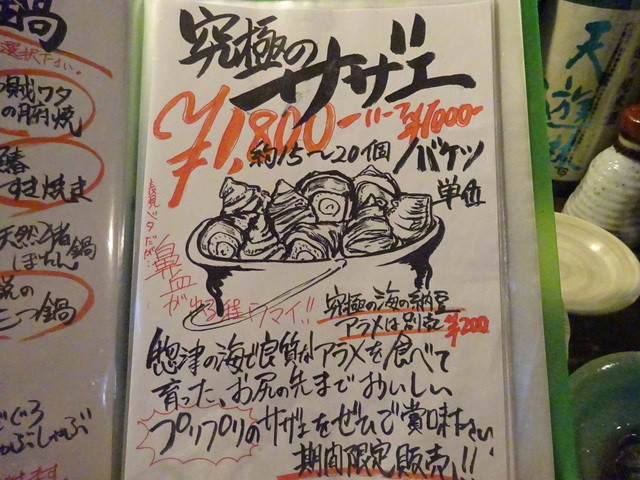 鍋
選択下さい。
海賊ワタ
の酒焼
鰆
すき焼き
天然猪
ぼたん鍋
もつ鍋
しゃぶしゃぶ
究極の
サザエ
¥1,800-
ハーフ¥1000-
約15〜20個
バケツ
単位
鼻血が
出る程ウマイ!!
究極の海の納豆
アラメは別売¥200
惣津の海で良質なアラメを食べて
育った、お尻の先までおいしい
プリプリのサザエをぜひご賞味下さい
期間限定販売!!
天遊琳